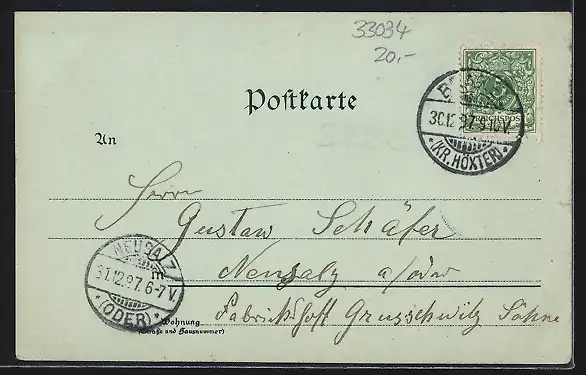 33034
20,-
Postkarte
REICHSPOST
30.12.97. 9-10 V.
* (KR. HÖXTER) *
An
Herrn
Gustav Schäfer
in Neusalz a/oder
NEUSALZ
31.12.97. 6-7 V.
* (ODER) *
Fabrikshof Gruschwitz Söhne
Wohnung
(Straße und Hausnummer)